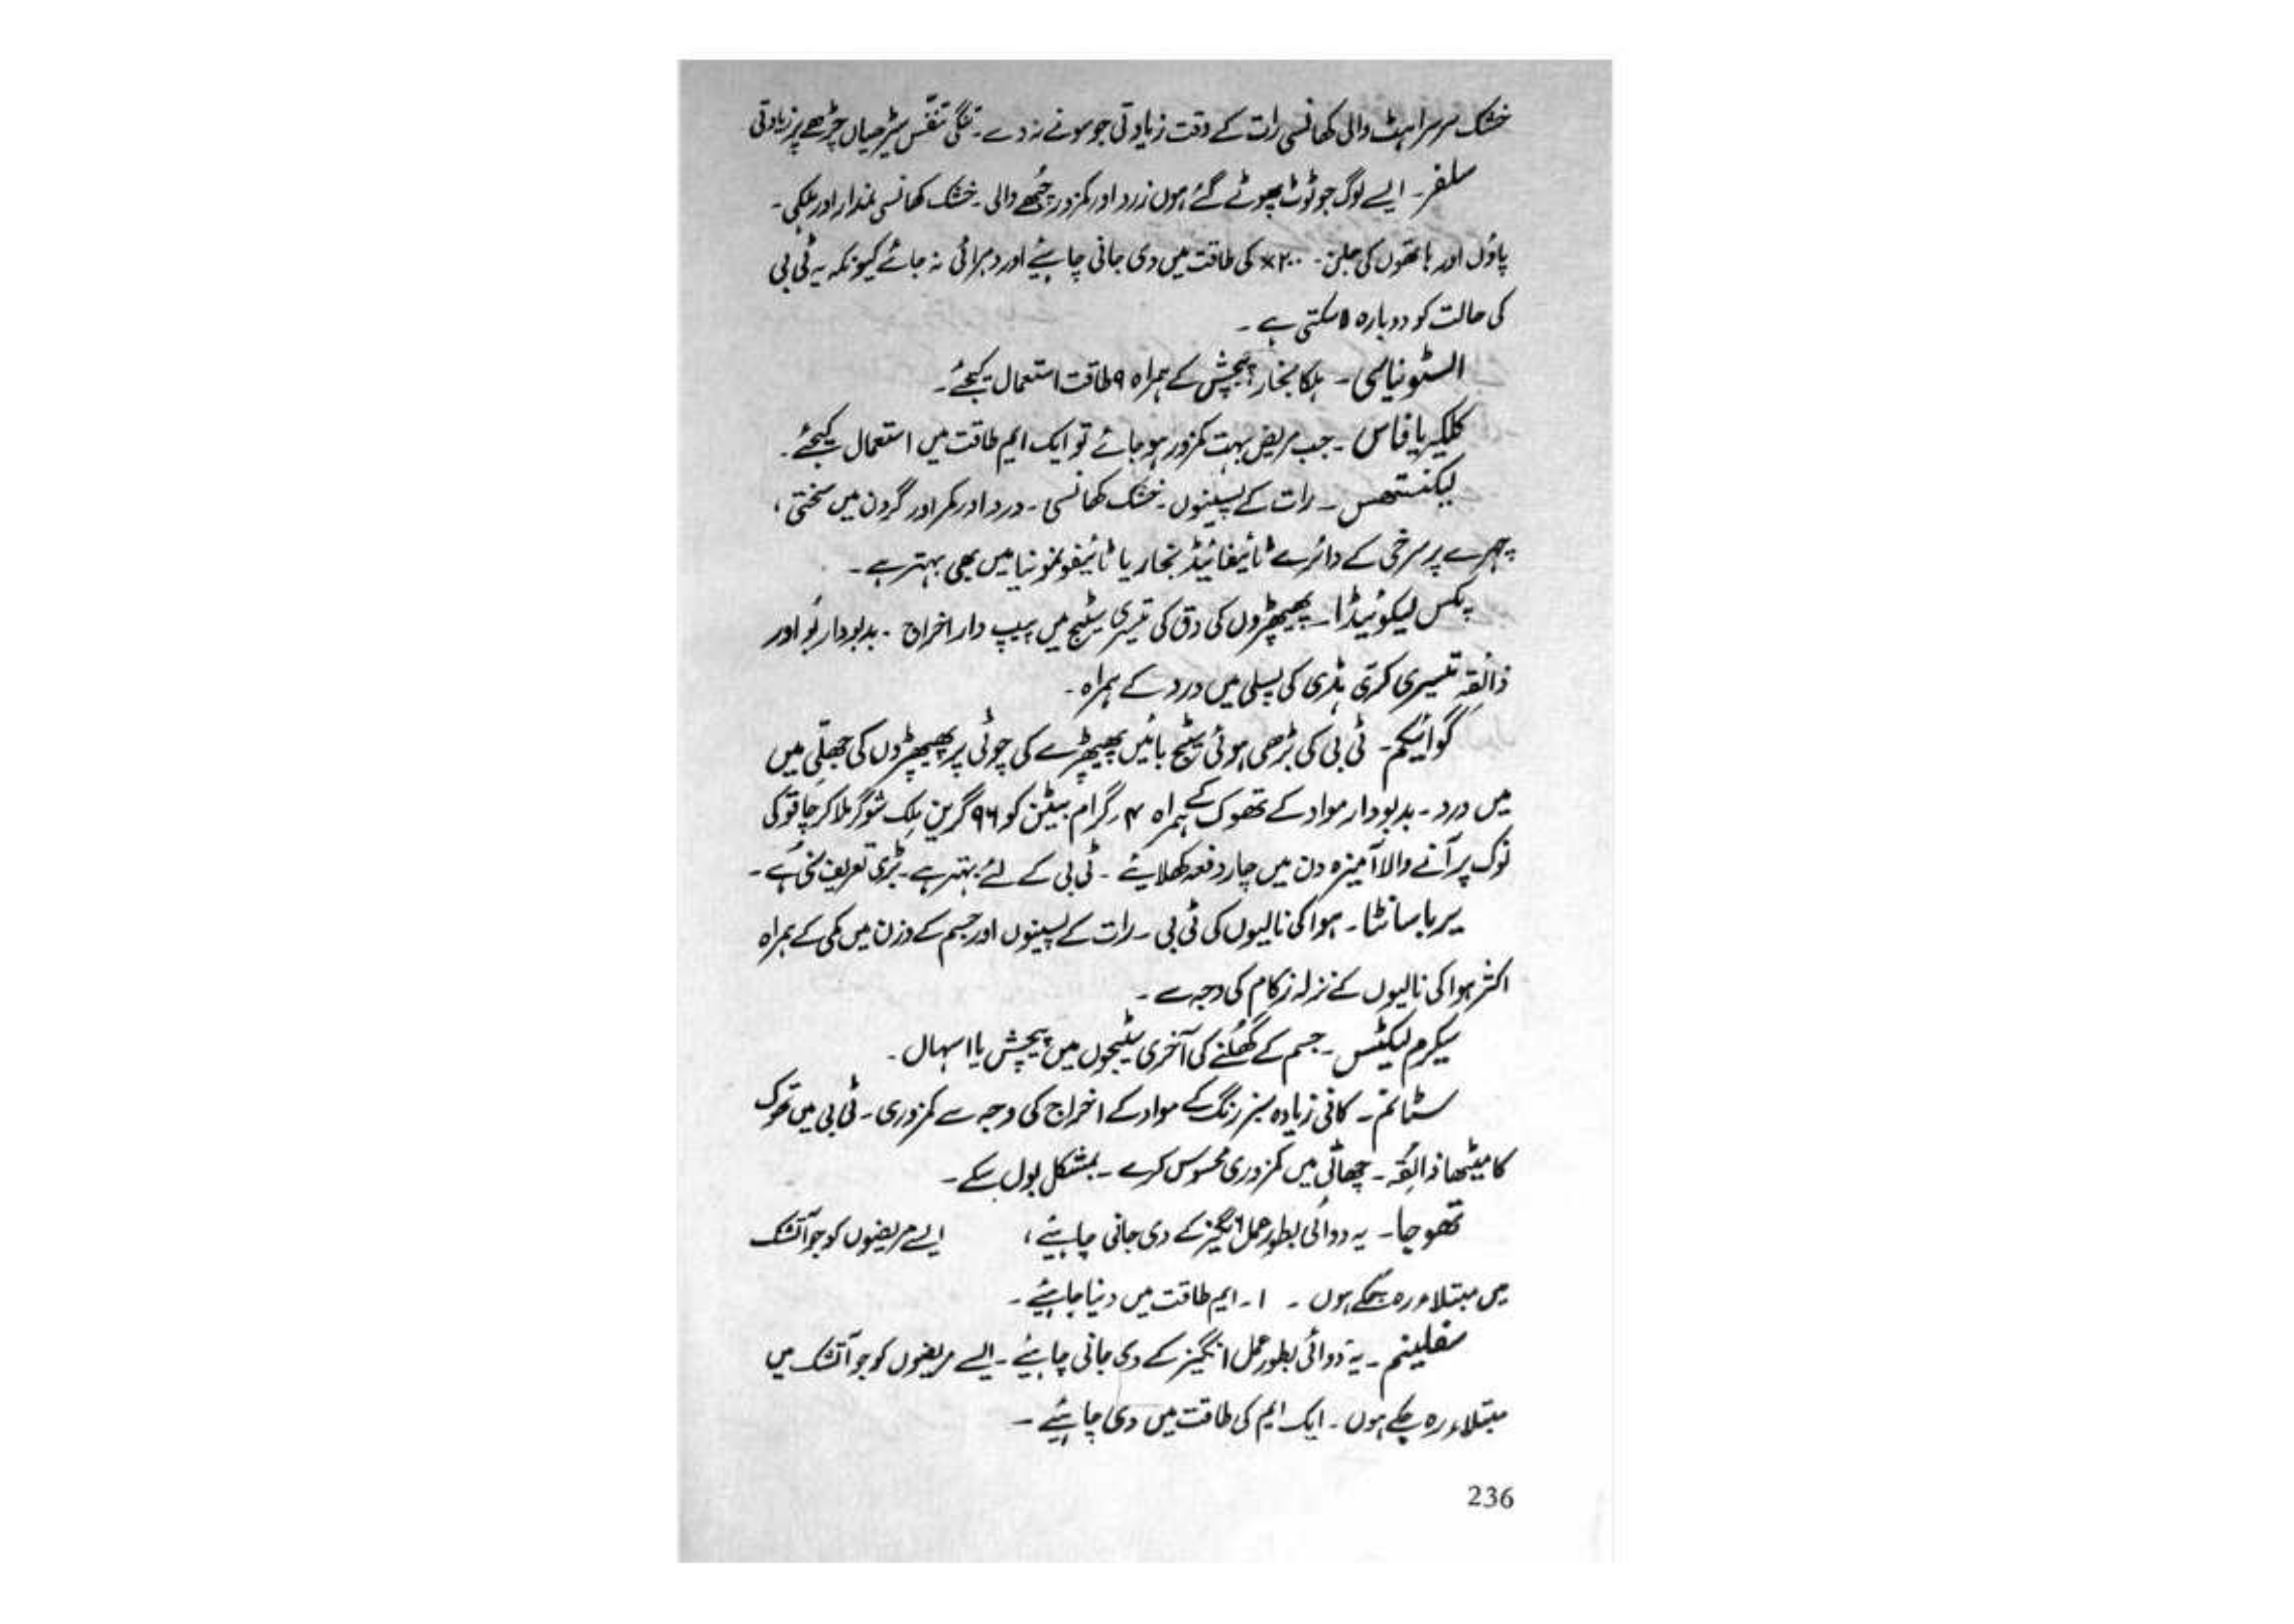 خشک سرسراہٹ والی کھانسی رات کے وقت زیادتی جو سونے نہ دے۔ تنگی تنفّس سیڑھیاں چڑھے پر زیادتی
سلفر۔ ایسے لوگ جو ٹوٹ پھوٹے گئے ہوں زرد اور کمزور جُثے والی۔ خشک کھانسی بلغمدار اور ہلکی۔
پاؤں اور ہاتھوں کی جلن۔ ×۲۰۰ کی طاقت میں دی جانی چاہیئے اور دہرائی نہ جائے کیونکہ یہ ٹی بی
کی حالت کو دوبارہ لا سکتی ہے۔
السٹونیاسی۔ ہلکا بخار، پیچش کے ہمراہ ۹ طاقت استعمال کیجئے۔
کلکیریا فاس۔ جب مریض بہت کمزور ہو جائے تو ایک ایم طاقت میں استعمال کیجئے۔
لیکنتھس۔ رات کے پسینوں۔ خشک کھانسی۔ درد اور کمر اور گردن میں سختی،
چہرے پر سرخی کے دائرے ٹائیفائیڈ بخار یا ٹائیفونمونیا میں بھی بہتر ہے۔
پکس لیکوئیڈا۔ پھیپھڑوں کی دق کی تیسری سٹیج میں پیپ دار اخراج۔ بدبودار بُو اور
ذائقہ تیسری کرتی ہڈی کی پسلی میں درد کے ہمراہ۔
گوائیکم۔ ٹی بی کی بڑھی ہوئی سٹیج بائیں پھیپھڑے کی چوٹی پر پھیپھڑوں کی جھلّی میں
میں درد۔ بدبودار مواد کے تھوک کے ہمراہ ۴ گرام بیٹن کو ۹۶ گرین ملک شوگر ملا کر چاقو کی
نوک پر آنے والا آمیزہ دن میں چار دفعہ کھلائیے۔ ٹی بی کے لئے بہتر ہے۔ بڑی تعریف کی ہے۔
یربا سانٹا۔ ہوا کی نالیوں کی ٹی بی۔ رات کے پسینوں اور جسم کے وزن میں کمی کے ہمراہ
اکثر ہوا کی نالیوں کے نزلہ زکام کی وجہ سے۔
سیکرم لیکٹس۔ جسم کے گھُلنے کی آخری سٹیجوں میں پیچش یا اسہال۔
سٹائنم۔ کافی زیادہ سبز رنگ کے مواد کے اخراج کی وجہ سے کمزوری۔ ٹی بی میں تھوک
کا میٹھا ذائقہ۔ چھاتی میں کمزوری محسوس کرے۔ بمشکل بول سکے۔
تھوجا۔ یہ دوائی بطور عمل انگیز کے دی جانی چاہیئے، ایسے مریضوں کو جو آتشک
میں مبتلاء رہ چکے ہوں۔ ۱۔ ایم طاقت میں دینا چاہیئے۔
سفلینم۔ یہ دوائی بطور عمل انگیز کے دی جانی چاہیئے۔ ایسے مریضوں کو جو آتشک میں
مبتلاء رہ چکے ہوں۔ ایک ایم کی طاقت میں دی چاہیئے۔
236